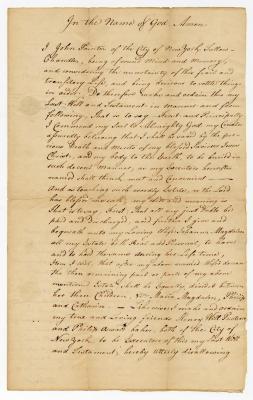 In the Name of God Amen
I John Painter of the City of New York, Tallow-
Chandler, being of sound Mind and Memory,
and considering the uncertainty of this frail and
transitory Life, and being desirous to settle things
in order. Do therefore make and ordain this my
Last Will and Testament in manner and form
following, That is to say First and Principally
I Commend my Soul to Allmighty God my Creator
assuredly believing that I shall be saved by the pre-
cious Death and Merits of my blessed Saviour Jesus
Christ, and my body to the Earth, to be buried in
such decent Manner, as my Executors hereafter
named shall think meet and Convenient —
And as touching such worldly Estate, as the Lord
has blessed me with, my Will and meaning is
That is to say, First, That all my just Debts be
paid and Discharged, and further I give and
bequeath unto my Loving Wife Johanna Magdalen
all my Estate both Real and Personal, to have
and to hold the same during her Life time,
Item I will, that after my above named Wifes demise
the then remaining part or parts of my above
mention'd Estate, shall be Equally divided between
her three Children, Viz. Maria Magdalen, Philip
and Catharina — Likewise I make and ordain
my true and Loving friends Henry Will Pewterer
and Philip baker, both of the City of
New York to be Executors of this my Last Will
and Testament, hereby utterly disallowing